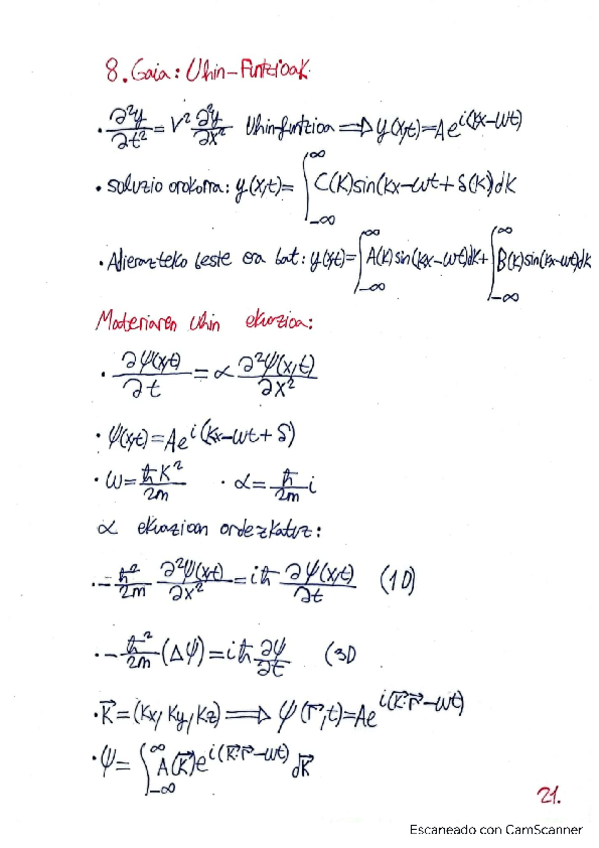 8. Gaia: Uhin-Funtzioak
• ∂²y/∂t² = V² ∂²y/∂x² Uhin-funtzioa ⟹ y(x,t)=Ae^{i(kx-ωt)}
• Soluzio orokorra: y(x,t)= ∫_{-∞}^{∞} C(K)sin(kx-ωt+δ(K))dK
• Adierazteko beste era bat: y(x,t)= ∫_{-∞}^{∞} A(K)sin(kx-ωt)dk + ∫_{-∞}^{∞} B(K)sin(kx-ωt)dk
Materiaren uhin ekuazioa:
• ∂Ψ(x,t)/∂t = α ∂²Ψ(x,t)/∂x²
• Ψ(x,t)=Ae^{i(kx-ωt+δ)}
• ω=ℏK²/2m • α=ℏ/2m i
α ekuazioan ordezkatuz:
• -ℏ²/2m ∂²Ψ(x,t)/∂x² = iℏ ∂Ψ(x,t)/∂t (1D)
• -ℏ²/2m (ΔΨ) = iℏ ∂Ψ/∂t (3D
• K⃗=(Kx, Ky, Kz) ⟹ Ψ(r⃗,t)=Ae^{i(K⃗·r⃗-ωt)}
• Ψ= ∫_{-∞}^{∞} A(K⃗)e^{i(K⃗·r⃗-ωt)} dK⃗
21.
Escaneado con CamScanner